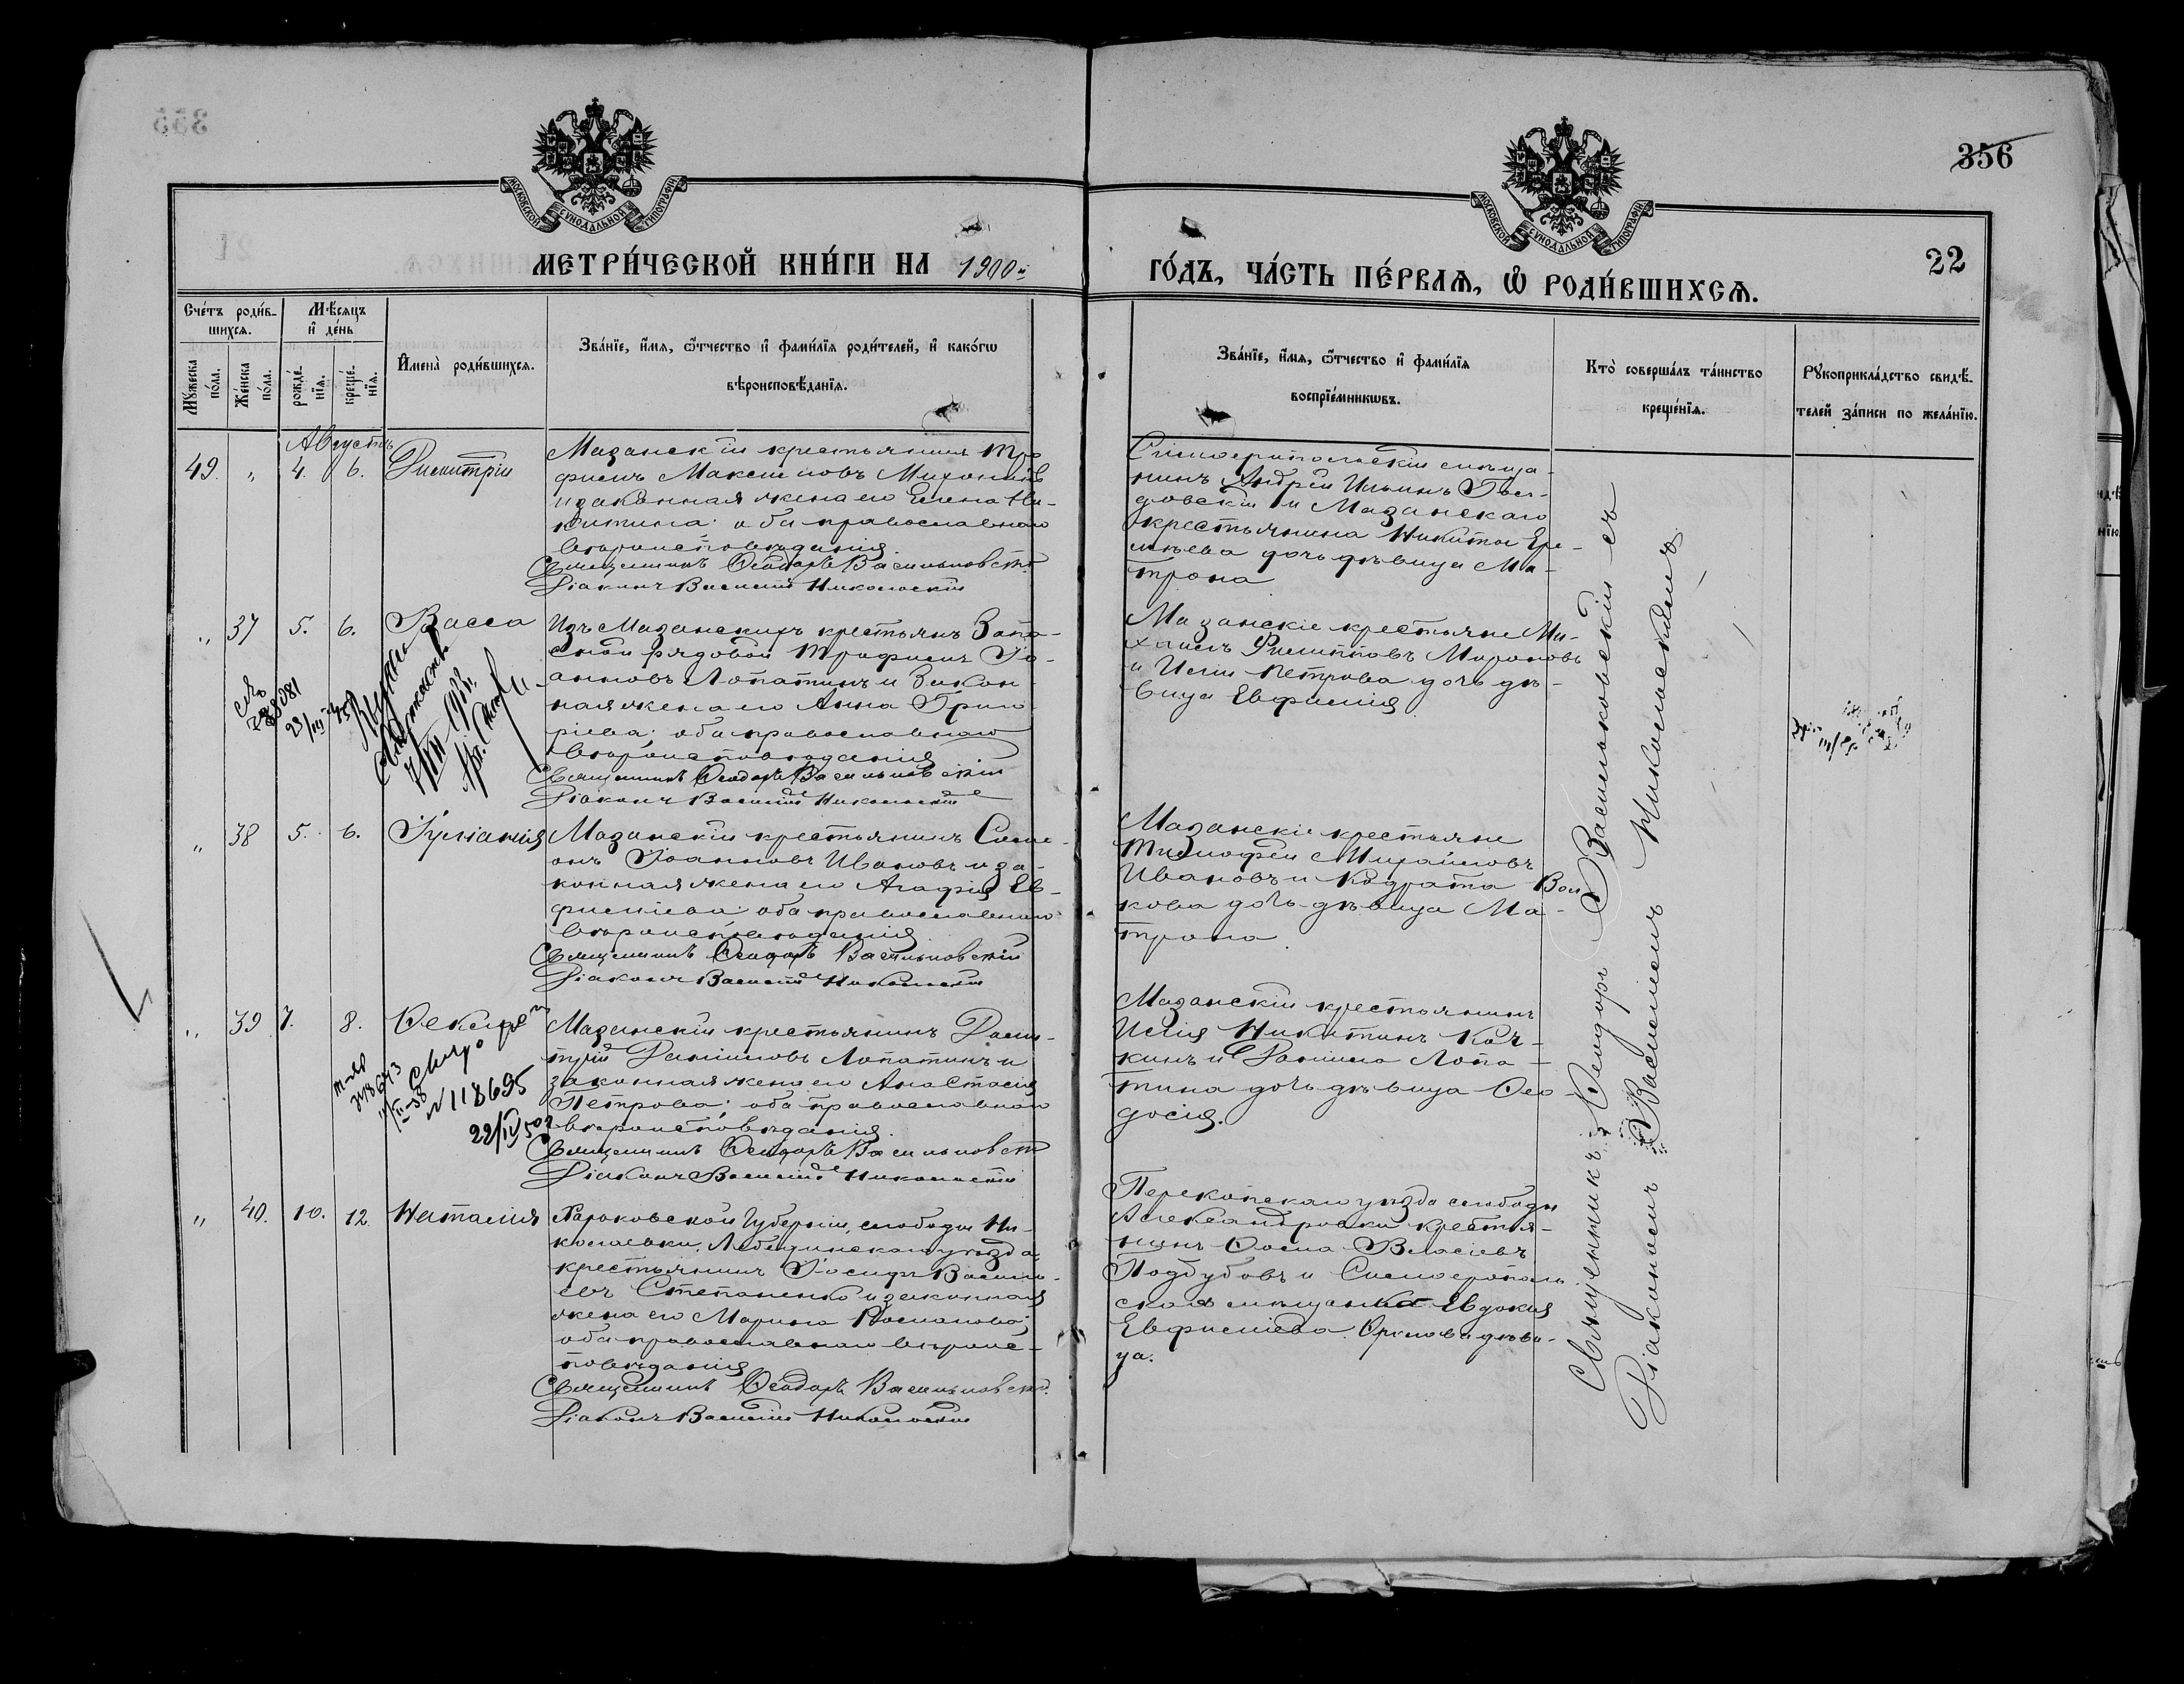 356
22
МОСКОВСКОЙ СУНОДАЛЬНОЙ ТИПОГРАФІИ
МОСКОВСКОЙ СУНОДАЛЬНОЙ ТИПОГРАФІИ
МЕТРИ́ЧЕСКОЙ КНИ́ГИ НА 1900й
ГО́ДЪ, ЧА́СТЬ ПЕ́РВАѦ, Ѽ РОДИ́ВШИХСѦ.
Сче́тъ роди́в-
шихся.
Мѣ́сяцъ
и҆ де́нь
Мꙋ́жеска
по́ла.
Же́нска
по́ла.
рожде́-
нїя.
креще́-
нїя.
И҆мена̀ роди́вшихся.
Зва́нїе, и҆́мя, ѻ҆́тчество и҆ фами́лїя роди́телей, и҆ како́гѡ
вѣроисповѣ́данїя.
Зва́нїе, и҆́мя, ѻ҆́тчество и҆ фами́лїя
воспрїе́мникѡвъ.
Кто̀ соверша́лъ та́инство
креще́нїя.
Рꙋкоприкла́дство свидѣ́-
телей за́писи по жела́нїю.
Августъ
49. " 4. 6. Димитрій
Мазанскій крестьянинъ Тро-
фимъ Максимовъ
и законная жена его Елена Ни-
китина; оба православнаго
вѣроисповѣданія.
Священникъ Ѳеодоръ Васильковскій
Діаконъ Василій Никольскій
Симферопольскій мѣща-
нинъ Андрей Ильинъ
и Мазанскаго
крестьянина Никиты Ере-
мѣева дочь дѣвица Ма-
трона
" 37 5. 6. Васса
Изъ Мазанскихъ крестьянъ Запа-
сной рядовой Трофимъ Іо-
анновъ Лопатинъ и Закон-
ная жена его Анна Григо-
рьева; оба православнаго
вѣроисповѣданія
Священникъ Ѳеодоръ Васильковскій
Діаконъ Василій Никольскій
Мазанскіе крестьяне Ми-
хаилъ Филипповъ Мироновъ
и Иліи Петрова дочь дѣ-
вица Евфимія
" 38 5. 6. Іуліанія
Мазанскій крестьянинъ Симе-
онъ Іоанновъ Ивановъ и за-
конная жена его Агафія Ев-
фиміева; оба православнаго
вѣроисповѣданія
Священникъ Ѳеодоръ Васильковскій
Діаконъ Василій Никольскій
Мазанскіе крестьяне
Тимофей Михайловъ
Ивановъ и Кодрата Вол-
кова дочь дѣвица Ма-
трона
" 39 7. 8. Ѳекла
№ 118695
Мазанскій крестьянинъ Дими-
трій Даніиловъ Лопатинъ и
законная жена его Анастасія
Петрова; оба православнаго
вѣроисповѣданія.
Священникъ Ѳеодоръ Васильковскій
Діаконъ Василій Никольскій
Мазанскій крестьянинъ
Илія Никитинъ Коч-
кинъ и Даніила Лопа-
тина дочь дѣвица Ѳео-
досія.
" 40. 10. 12. Наталія
Харьковской Губерніи, слободы Ни-
колаевки, Лебединскаго уѣзда
крестьянинъ Іосифъ Василь-
евъ Степаненко и законная
жена его Марина Романова;
оба православнаго вѣроис-
повѣданія
Священникъ Ѳеодоръ Васильковскій
Діаконъ Василій Никольскій
Перекопскаго уѣзда слободы
Александровки крестья-
нинъ Ѳома Власіевъ
Поддубовъ и Симферополь-
ская мѣщанка Евдокія
Евфиміева Орлова дѣви-
ца.
Священникъ Ѳеодоръ Васильковскій съ
Діакономъ Василіемъ Никольскимъ